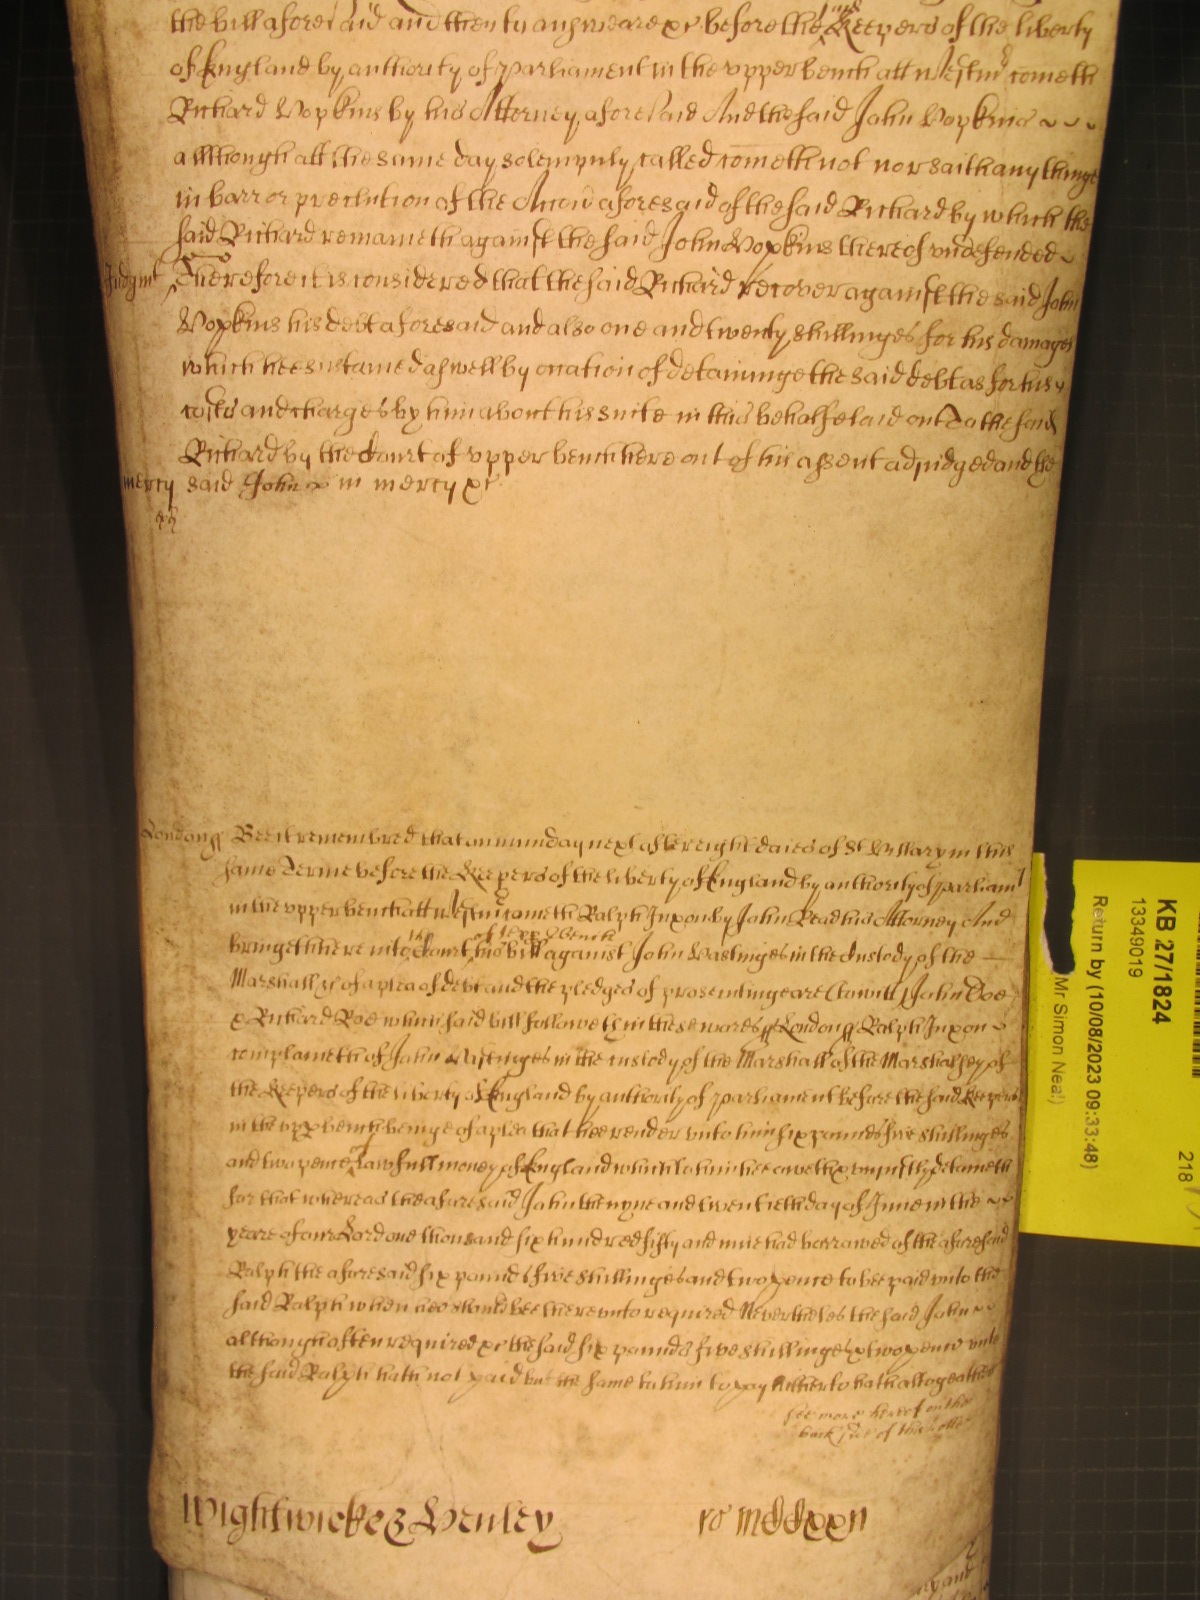 the bill aforesaid and then to answeare &c before the said Keepers of the liberty
of England by authority of Parliament in the upper bench att Westmr cometh
Richard Hopkins by his Attorney aforesaid And the said John Hopkins
allthough att the same day solempnly called cometh not nor saith any thinge
in barr or preclution of the Accon aforesaid of the said Richard by which the
said Richard remaineth against the said John Hopkins thereof undefended
Judgmt Therefore it is considered that the said Richard recover against the said John
Hopkins his debt aforesaid and also one and twenty shillinges for his damages
which hee sustained aswell by occation of detaininge the said debt as for his
costs and charges by him about his suite in this behalfe laid out to the said
Richard by the Court of upper bench here out of his assent adjudged and the
mercy said John in mercy &c
London ss Bee it remembred that on munday next after eight daies of St Hillary in this
same Terme before the Keepers of the liberty of England by authority of Parliamt
in the upper bench att Westmr cometh Ralph Inxon by John Read his Attorney And
of upp bench
bringeth here into the Court his bill against John Hastinges in the Custody of the
Marshall &c of a plea of debt and the pledges of prosecutinge are (to witt) John Doe
& Richard Roe which said bill followeth in these words ss London ss Ralph Inxon
complaineth of John Hastinges in the custody of the Marshall of the Marshalsey of
the Keepers of the liberty of England by authority of parliament before the said Keepers
in the upp bench beinge of a plea that hee render unto him six pounds five shillinges
and two pence Lawfull money of England which to him hee oweth & uniustly detaineth
for that whereas the aforesaid John the nyne and twentieth day of June in the
yeare of our Lord one thousand six hundred fifty and nine had borrowed of the aforesaid
Ralph the aforesaid six pounds five shillinges and two pence to bee paid unto the
said Ralph when hee should bee thereunto required Neverthelesse the said John
although often required &c the said six pounds five shillinges & two pence unto
the said Ralph hath not paid but the same to him to pay hitherto hath altogeather
see more hereof on the
back side of this rolle
Wightwicke & Henley ro mddxxii
KB 27/1824
13349019
Return by (10/08/2023 09:33:48)
Mr Simon Neal)
218